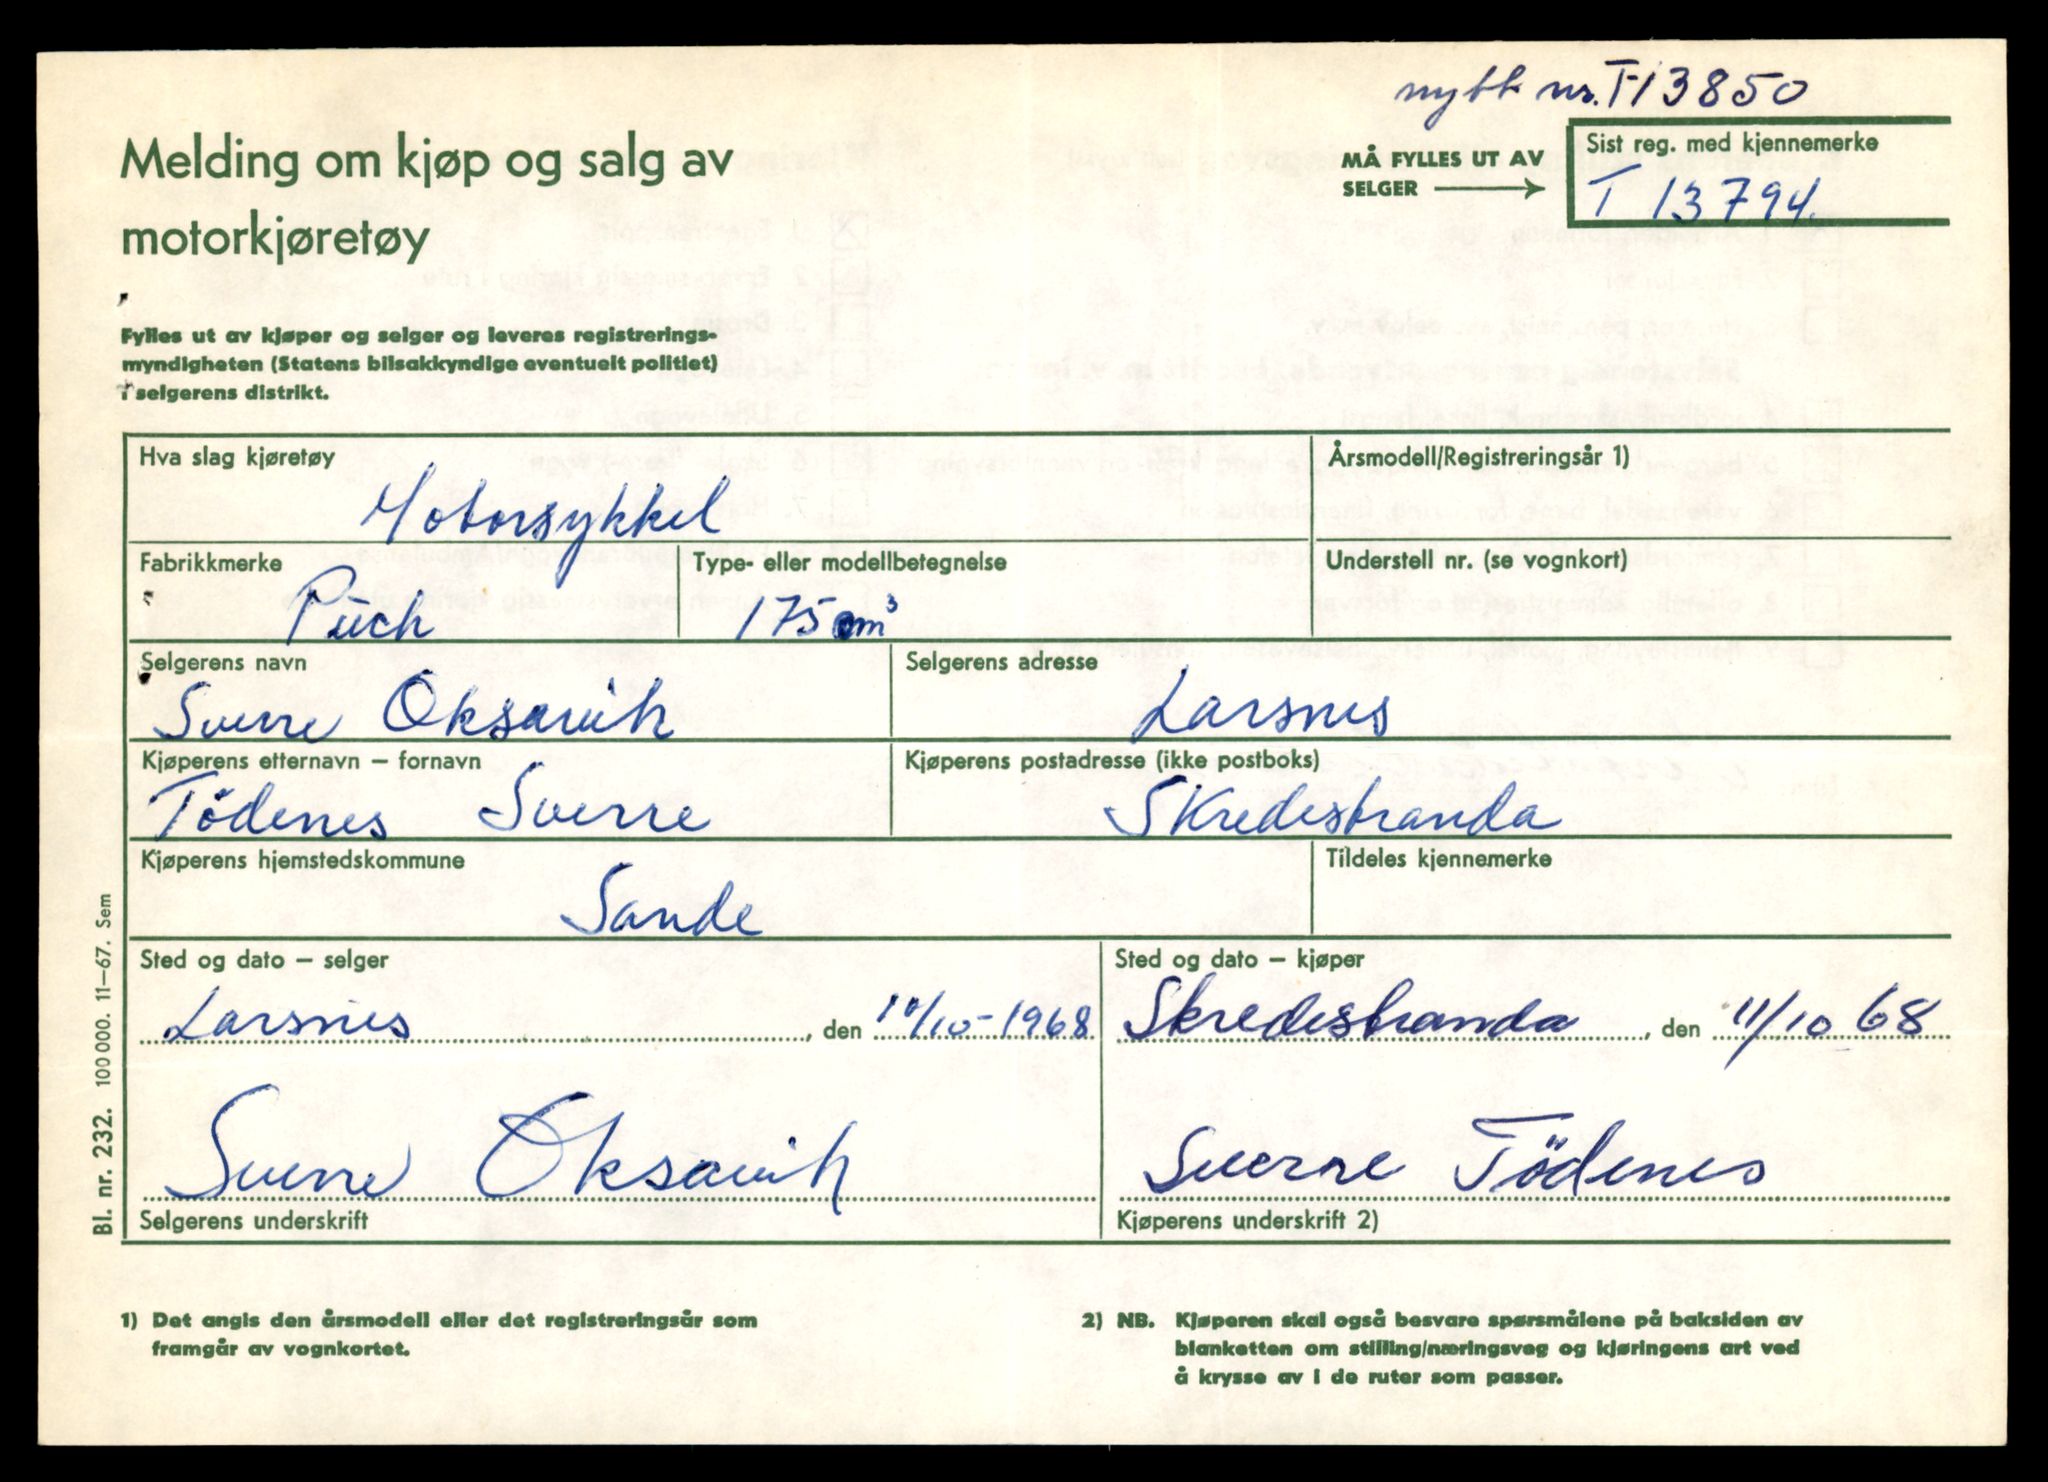 nytt nr. T-13850
Melding om kjøp og salg av
motorkjøretøy
MÅ FYLLES UT AV
SELGER
Sist reg. med kjennemerke
T 13794.
Fylles ut av kjøper og selger og leveres registrerings-
myndigheten (Statens bilsakkyndige eventuelt politiet)
i selgerens distrikt.
Hva slag kjøretøy
Årsmodell/Registreringsår 1)
Motorsykkel
Fabrikkmerke
Type- eller modellbetegnelse
Understell nr. (se vognkort)
Puch
175 cm³
Selgerens navn
Selgerens adresse
Sverre Oksavik
Larsnes
Kjøperens etternavn – fornavn
Kjøperens postadresse (ikke postboks)
Tödenes Sverre
Skredestranda
Kjøperens hjemstedskommune
Tildeles kjennemerke
Sande
Sted og dato – selger
Sted og dato – kjøper
Larsnes, den 10/10-1968
Skredestranda, den 11/10 68
Sverre Oksavik
Sverre Tödenes
Selgerens underskrift
Kjøperens underskrift 2)
Bl. nr. 232. 100 000. 11–67. Sem
1) Det angis den årsmodell eller det registreringsår som
framgår av vognkortet.
2) NB. Kjøperen skal også besvare spørsmålene på baksiden av
blanketten om stilling/næringsveg og kjøringens art ved
å krysse av i de ruter som passer.